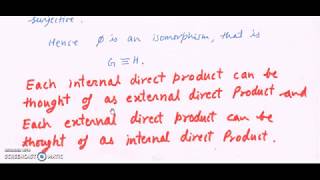 surjective.
Hence φ is an isomorphism, that is
G ≅ H.
Each internal direct product can be
thought of as external direct Product and
Each external direct product can be
thought of as internal direct Product.
RECORDED WITH
SCREENCAST MATIC